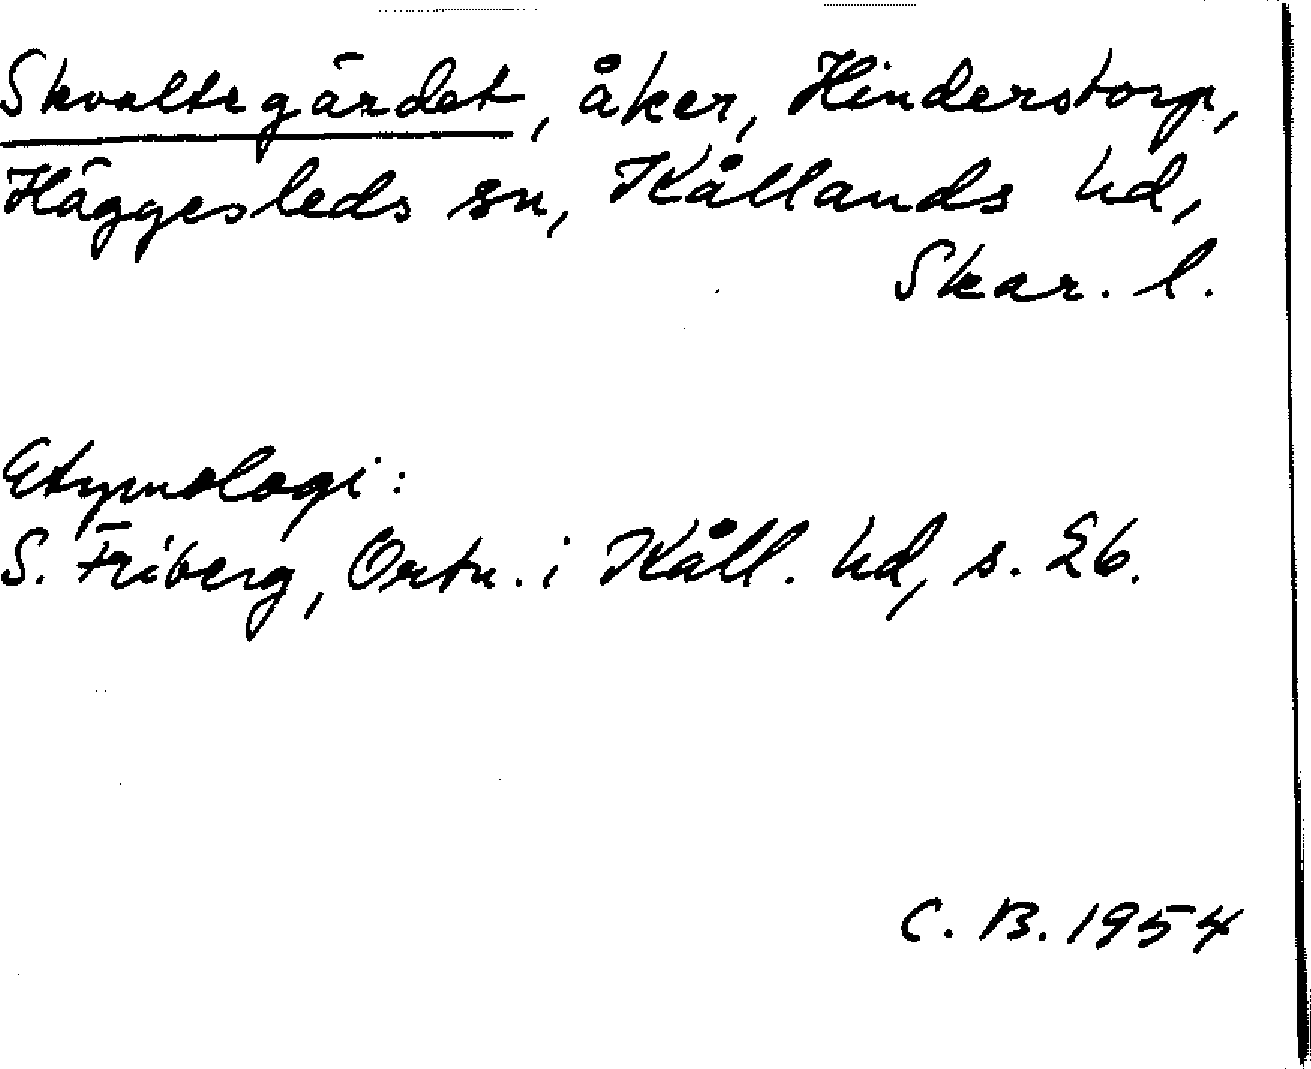 Skvaltegärdet, åker, Hinderstorp,
Häggesleds sn, Kållands hd,
Skar. l.
Etymologi:
S. Friberg, Ortn. i Kåll. hd, s. 26.
C. B. 1954